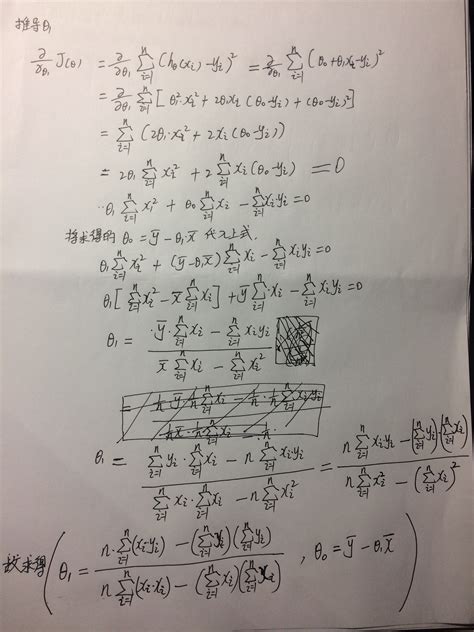 推导θ₁
∂/∂θ₁ J(θ) = ∂/∂θ₁ ∑_{i=1}^{n} (h_θ(x_i) - y_i)² = ∂/∂θ₁ ∑_{i=1}^{n} (θ₀ + θ₁x_i - y_i)²
= ∂/∂θ₁ ∑_{i=1}^{n} [θ₁²·x_i² + 2θ₁x_i(θ₀ - y_i) + (θ₀ - y_i)²]
= ∑_{i=1}^{n} (2θ₁·x_i² + 2x_i(θ₀ - y_i))
= 2θ₁ ∑_{i=1}^{n} x_i² + 2 ∑_{i=1}^{n} x_i(θ₀ - y_i) = 0
θ₁ ∑_{i=1}^{n} x_i² + θ₀ ∑_{i=1}^{n} x_i - ∑_{i=1}^{n} x_i y_i = 0
将求得的 θ₀ = ȳ - θ₁·x̄ 代入上式.
θ₁ ∑_{i=1}^{n} x_i² + (ȳ - θ₁x̄) ∑_{i=1}^{n} x_i - ∑_{i=1}^{n} x_i y_i = 0
θ₁ [∑_{i=1}^{n} x_i² - x̄ ∑_{i=1}^{n} x_i] + ȳ ∑_{i=1}^{n} x_i - ∑_{i=1}^{n} x_i y_i = 0
θ₁ = (ȳ ∑_{i=1}^{n} x_i - ∑_{i=1}^{n} x_i y_i) / (x̄ ∑_{i=1}^{n} x_i - ∑_{i=1}^{n} x_i²)
θ₁ = (∑_{i=1}^{n} y_i · ∑_{i=1}^{n} x_i - n ∑_{i=1}^{n} x_i·y_i) / (∑_{i=1}^{n} x_i · ∑_{i=1}^{n} x_i - n ∑_{i=1}^{n} x_i²) = (n ∑_{i=1}^{n} x_i y_i - (∑_{i=1}^{n} y_i)·(∑_{i=1}^{n} x_i)) / (n ∑_{i=1}^{n} x_i² - (∑_{i=1}^{n} x_i)²)
故求得 (θ₁ = (n·∑_{i=1}^{n} (x_i·y_i) - (∑_{i=1}^{n} x_i)(∑_{i=1}^{n} y_i)) / (n ∑_{i=1}^{n} (x_i·x_i) - (∑_{i=1}^{n} x_i)(∑_{i=1}^{n} x_i)) , θ₀ = ȳ - θ₁x̄)